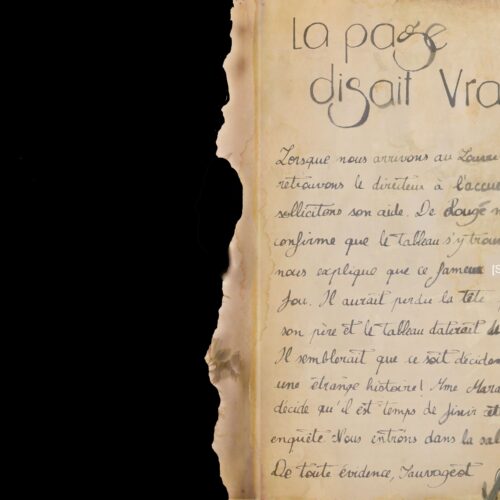 La page
disait Vra
Lorsque nous arrivons au Louvre
retrouvons le directeur à l'accue
sollicitons son aide. De Rougé n
confirme que le tableau s'y trouv
nous explique que ce fameux
fou. Il aurait perdu la tête
son père et le tableau daterait de
Il semblerait que ce soit décidém
une étrange histoire! Mme Mara
décide qu'il est temps de finir cet
enquête. Nous entrons dans la sal
De toute évidence, Sauvageot